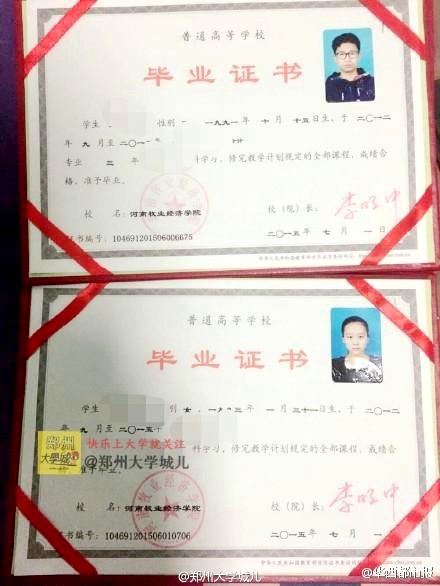 普通高等学校
毕业证书
学生 性别 一九九一年 十月 十五日生，于二〇一二
年 九月至二〇一
专业 三 年 科学习，修完教学计划规定的全部课程，成绩合
格，准予毕业。
校 名：河南牧业经济学院 校（院）长：李明中
证书编号：104691201506006675 二〇一五年 七月 一日
普通高等学校
毕业证书
学生 别 女，一九 三年 一月 三十一日生，于二〇一二
年 九月至二〇一五
郑州
大学城 快乐上大学就关注 科学习，修完教学计划规定的全部课程，成绩合
@郑州大学城儿
准予毕业。
校 名：河南牧业经济学院 校（院）长：李明中
证书编号：104691201506010706 二〇一五年 七月 一
@郑州大学城儿
华西都市报